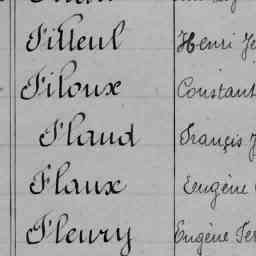 Filleul Henri
Filoux Constant
Flaud François
Flaux Eugène
Fleury Eugène